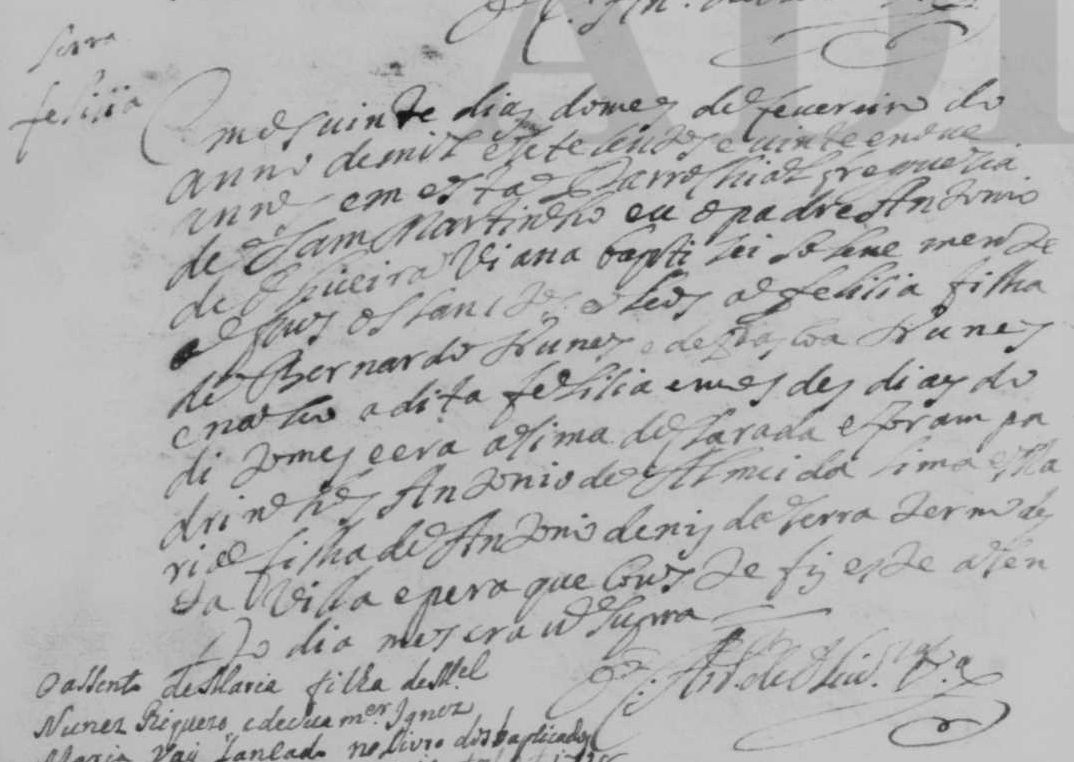 Serra
felisia
Em os vinte dias do mes de fevereiro do
anno de mil e sete sentos e vinte e nove
annos em esta Parrochial freguezia
de Sam Martinho eu o padre Antonio
de Viana baptisei solene mente
e pus os santos oleos a felisia filha
de Bernardo Nunes e de Nunes
e naseo a dita felisia em os des dias do
di to mes e era asima desLarada e foram pa
drinhos Antonio de Almeida Lima e Ma
ria filha de Antonio denis da serra termo des
ta Villa e pera que cons te fis este asen
to dia mes era ut supra
O assento de Maria filha de M.el
Nunez e de sua m.er Ignez
Maria vay lansado no livro dos baptizados